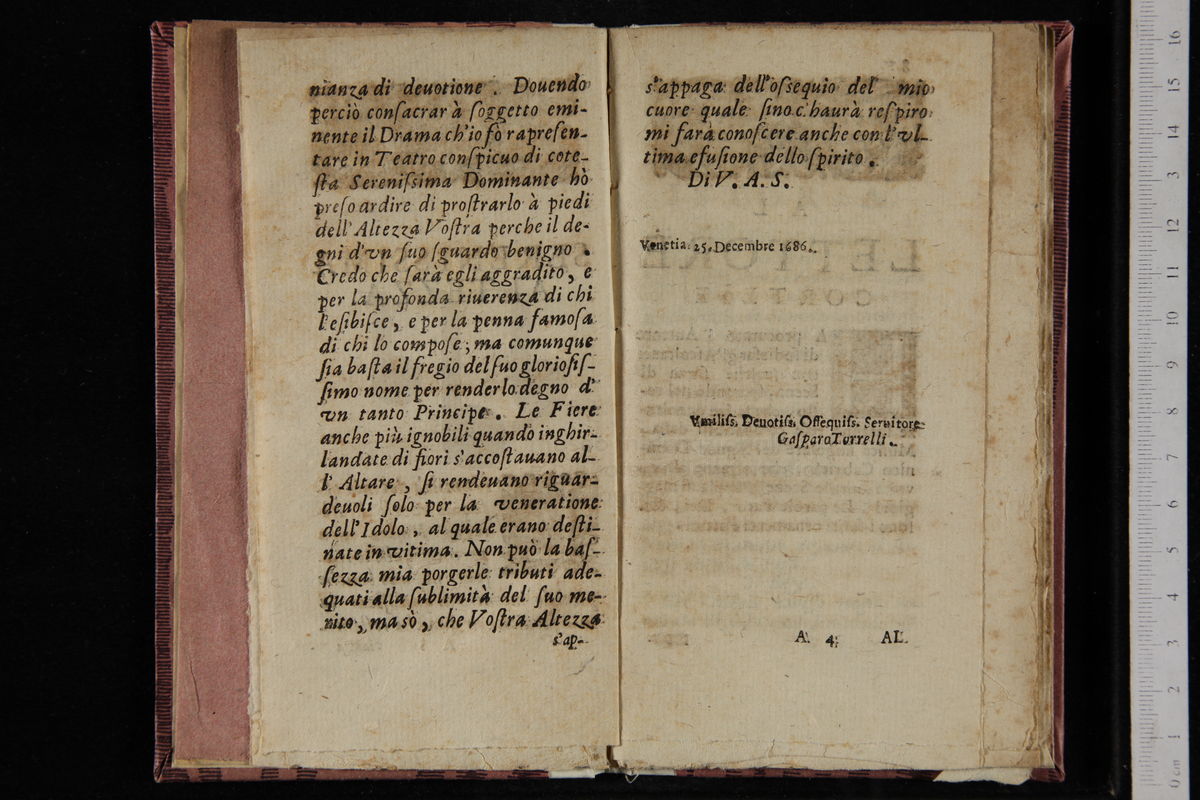 nianza di deuotione. Douendo
perciò consacrar à soggetto emi-
nente il Drama ch'io fò rapresen-
tare in Teatro conspicuo di cote-
sta Serenissima Dominante hò
preso ardire di prostrarlo à piedi
dell'Altezza Vostra perche il de-
gni d'vn suo sguardo benigno.
Credo che sarà egli aggradito, e
per la profonda riuerenza di chi
l'esibisce, e per la penna famosa
di chi lo compose; ma comunque
sia basta il fregio del suo gloriosis-
simo nome per renderlo degno d'
vn tanto Principe. Le Fiere
anche più ignobili quando inghir-
landate di fiori s'accostauano al-
l'Altare, si rendeuano riguar-
deuoli solo per la veneratione
dell'Idolo, al quale erano desti-
nate in vitima. Non può la bas-
sezza mia porgerle tributi ade-
quati alla sublimità del suo me-
rito, ma sò, che Vostra Altezza
s'ap-
s'appaga dell'ossequio del mio
cuore quale sino c'haurà respiro
mi farà conoscere anche con l'vl-
tima efusione dello spirito.
Di V. A. S.
Venetia 25. Decembre 1686.
Vmiliss. Deuotiss. Ossequiss. Seruitore
Gasparo Torrelli.
A 4 AL